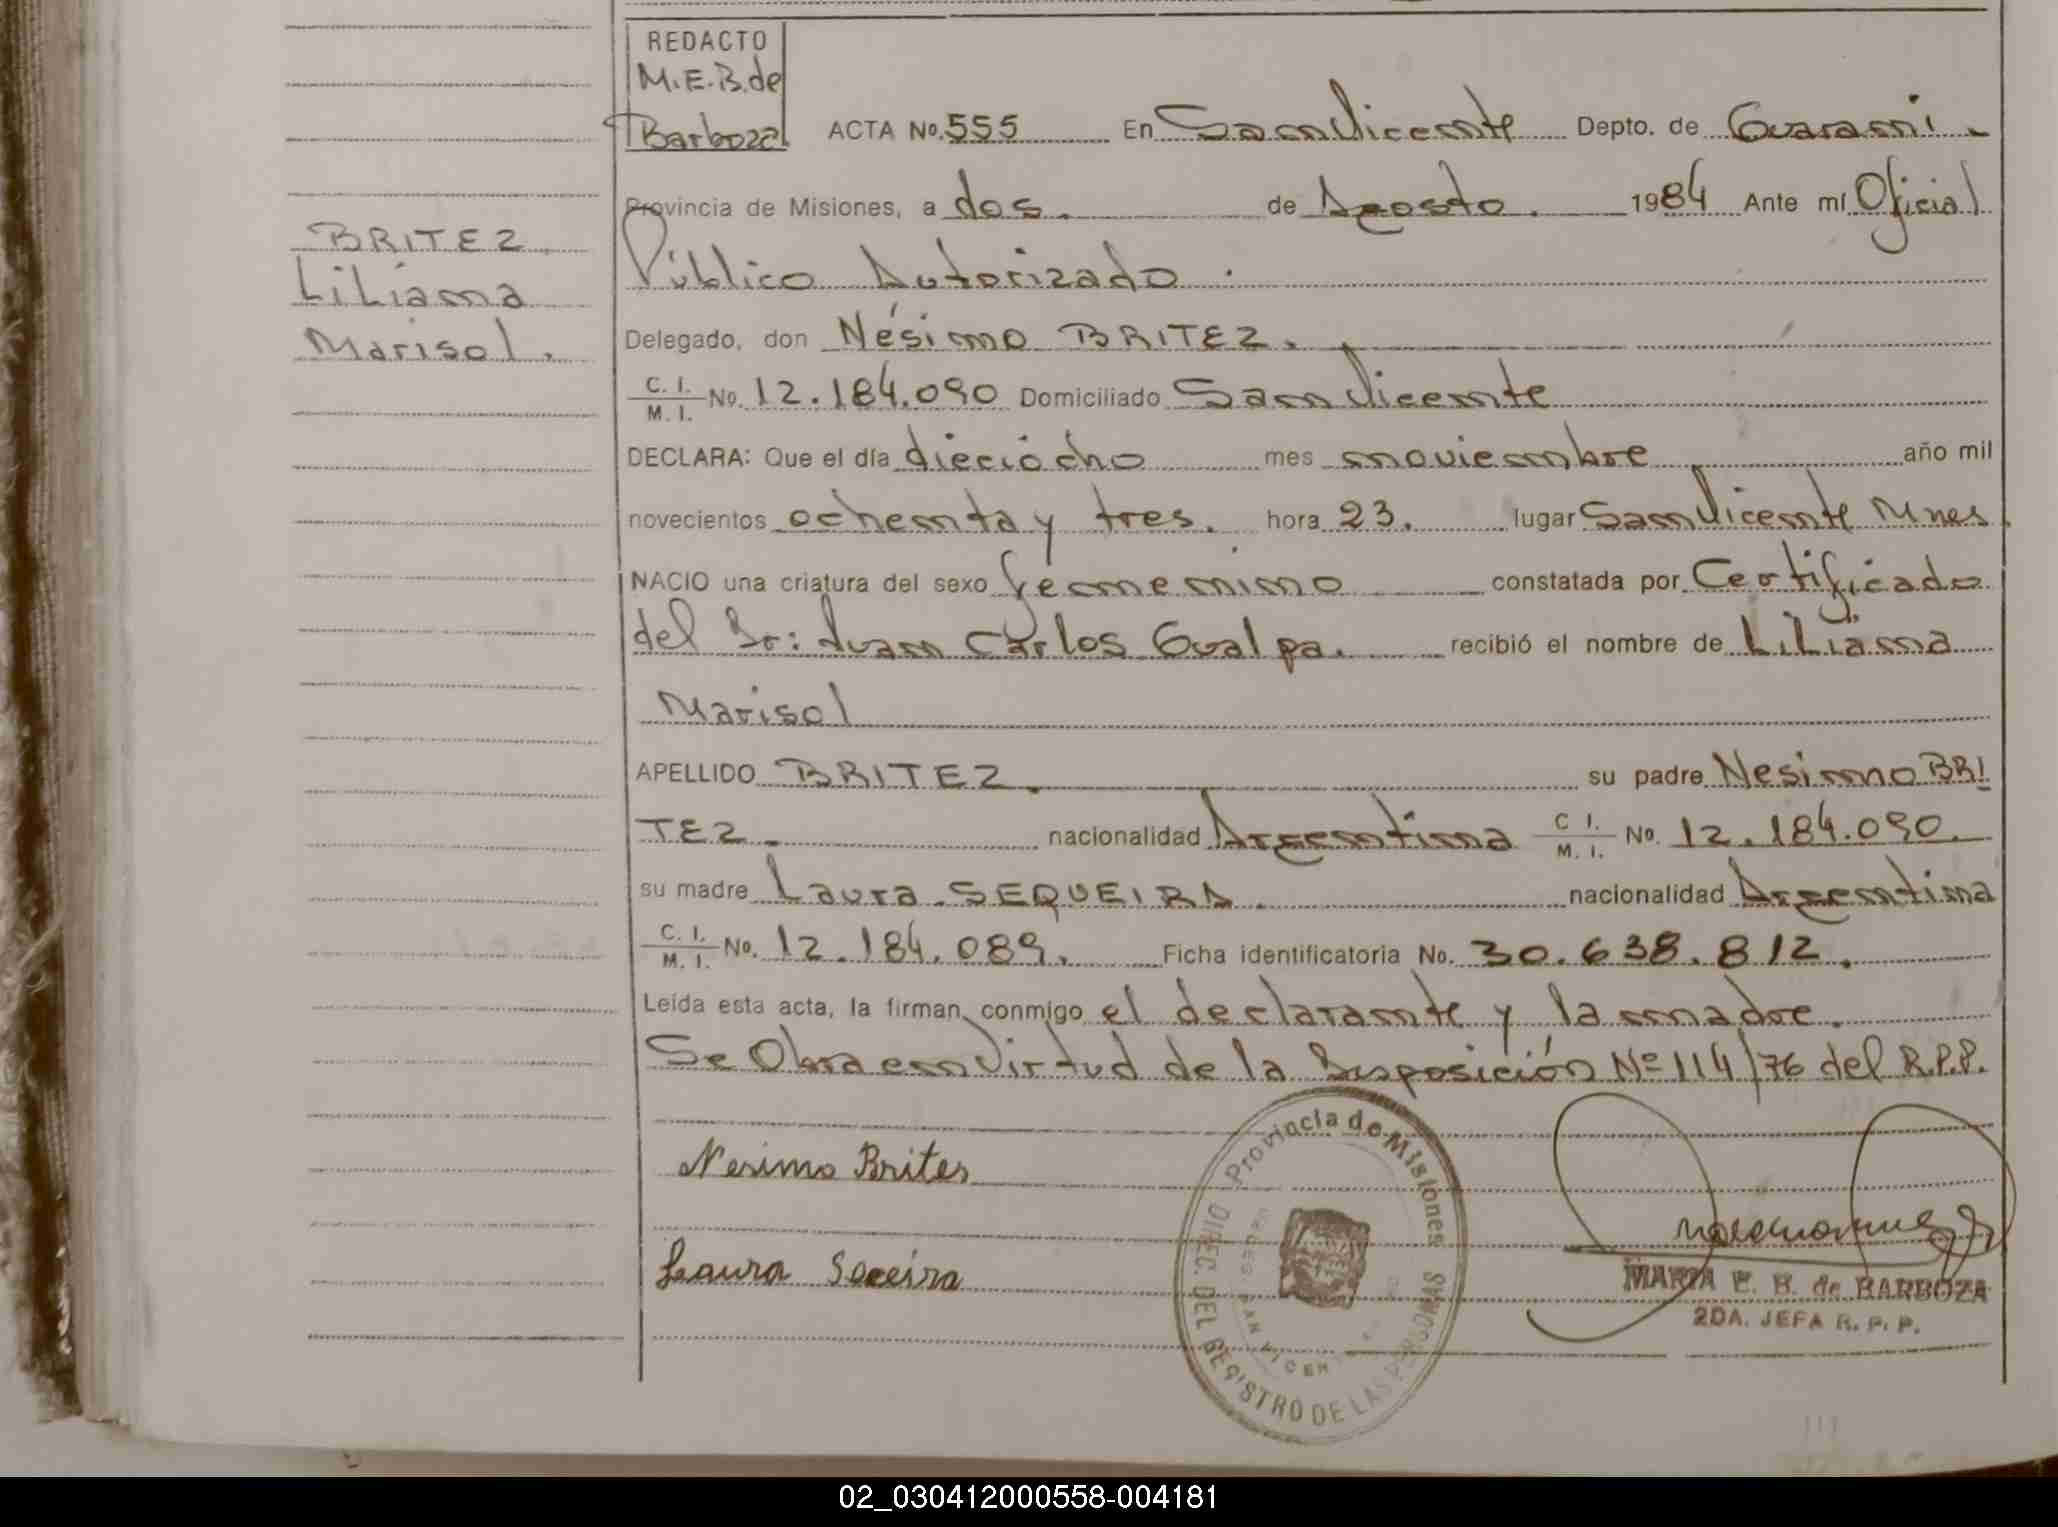 REDACTO
M.E.B. de
Barboza
ACTA No. 555 En San Vicente Depto. de Guarani.
Provincia de Misiones, a dos. de Agosto. 1984 Ante mí Oficial
BRITEZ
Público Autorizado.
Liliana
Delegado, don Nésimo BRITEZ.
Marisol.
C. I. / M. I. No. 12.184.090 Domiciliado San Vicente
DECLARA: Que el día dieciocho mes noviembre año mil
novecientos ochenta y tres. hora 23. lugar San Vicente Mnes.
NACIO una criatura del sexo femenino constatada por Certificado
del Sr: Juan Carlos Gualpa. recibió el nombre de Liliana
Marisol
APELLIDO BRITEZ. su padre Nesimo BRI
TEZ. nacionalidad Argentina C I. / M. I. No. 12.184.090.
su madre Laura SEQUEIRA. nacionalidad Argentina
C. I. / M. I. No. 12.184.089. Ficha identificatoria No. 30.638.812.
Leída esta acta, la firman conmigo el declarante y la madre.
Se Obra en Virtud de la Disposición Nº 114/76 del R.P.P.
Provincia de Misiones
DIREC. DEL REGISTRO DE LAS PERSONAS
SAN VICENTE
Nesimo Brites
Laura Seceira
MARIA E. B. de BARBOZA
2DA. JEFA R. P. P.
02_030412000558-004181